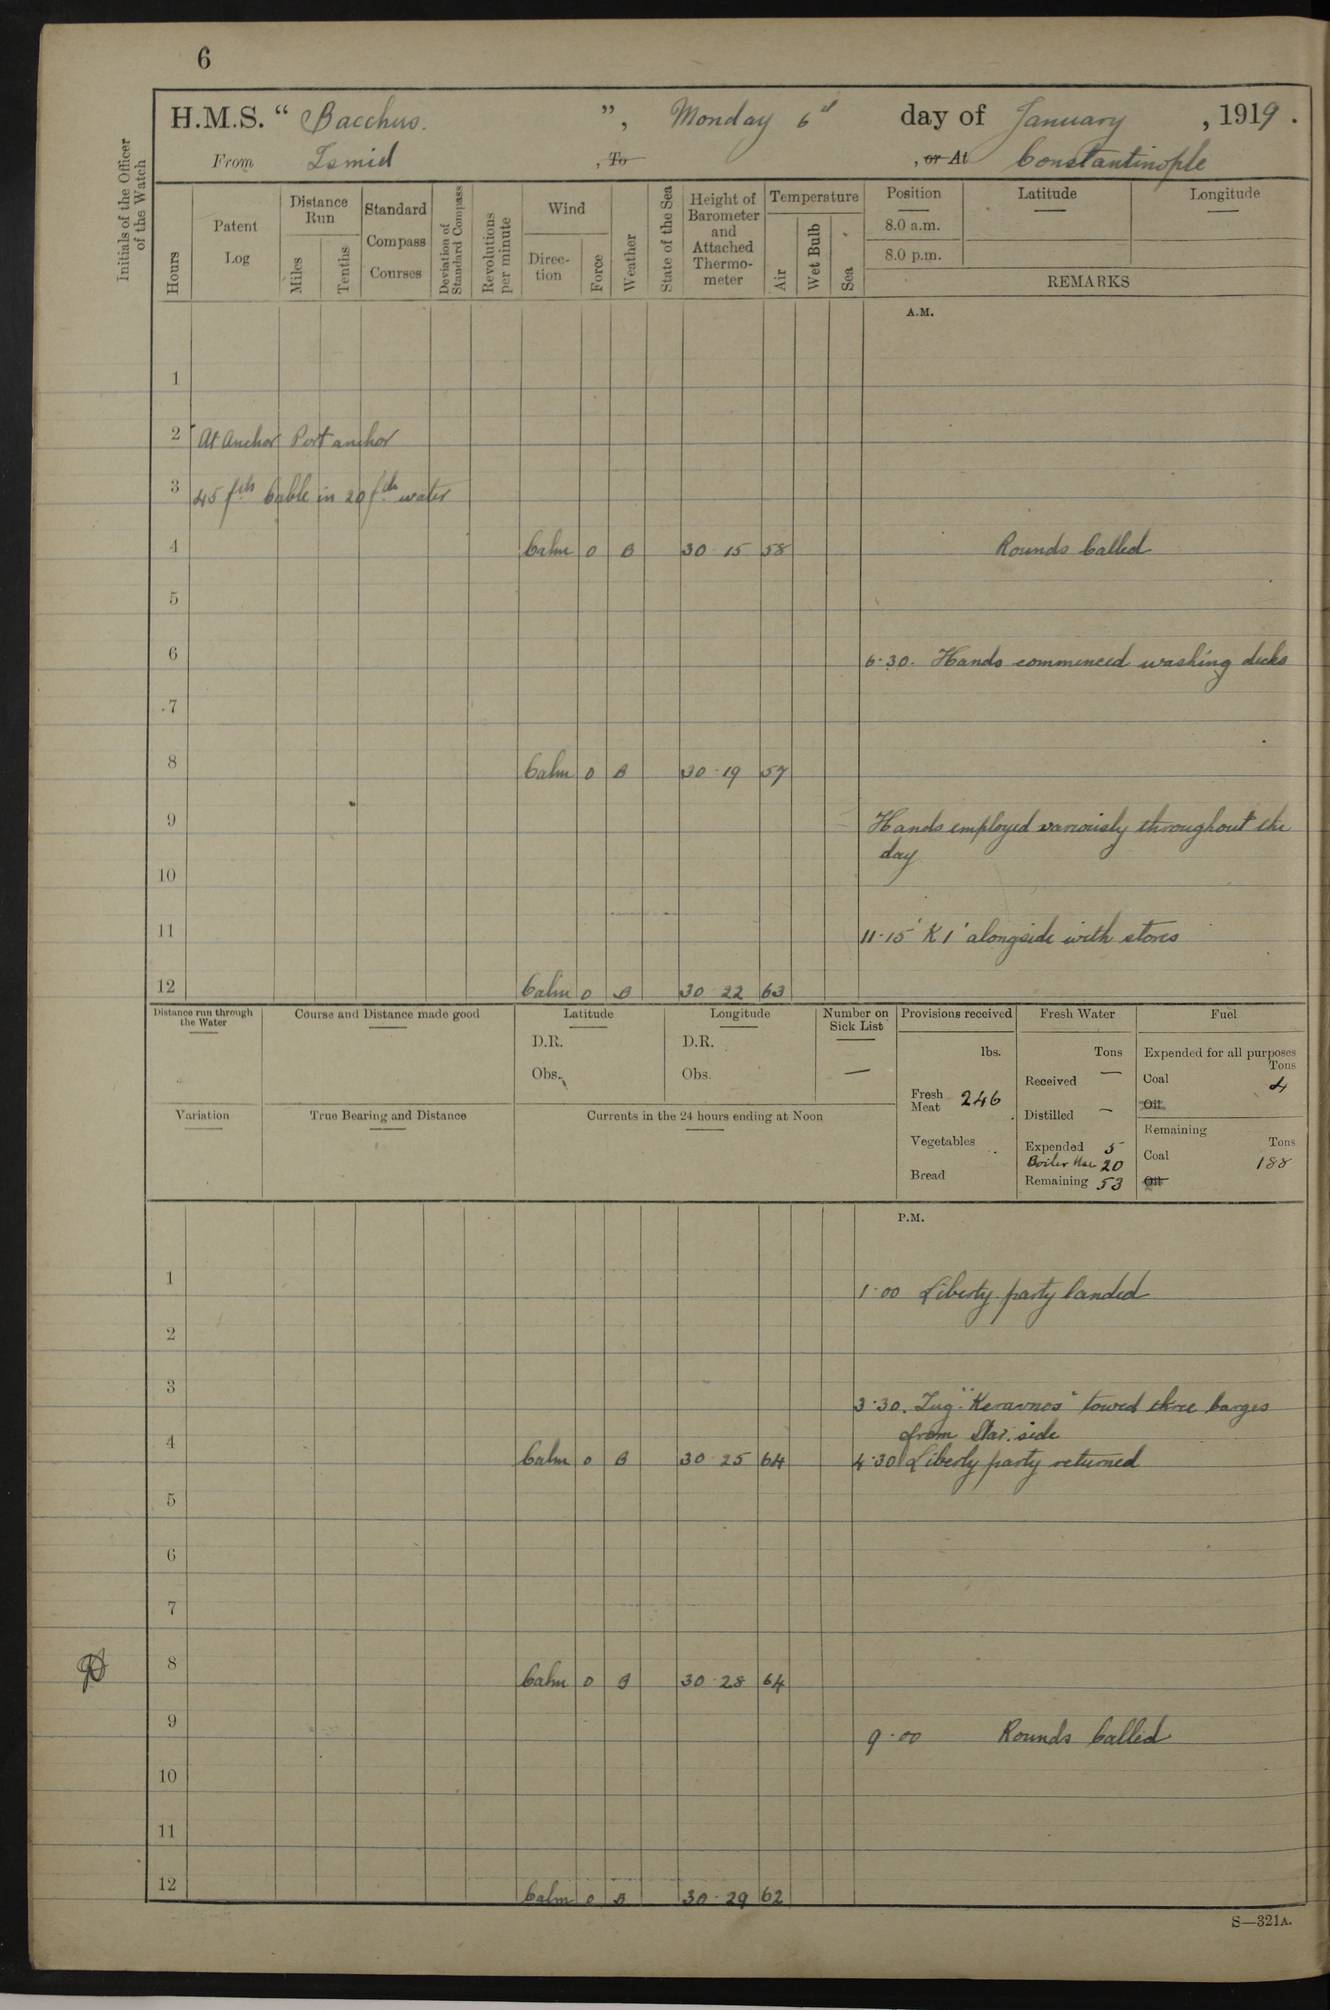 6
H.M.S. “ Bacchus. ”, Monday 6th day of January, 1919.
From Ismid, To , or At Constantinople
Initials of the Officer of the Watch
Hours
Patent Log
Distance Run
Miles
Tenths
Standard Compass Courses
Deviation of Standard Compass
Revolutions per minute
Wind
Direction
Force
Weather
State of the Sea
Height of Barometer and Attached Thermometer
Temperature
Air
Wet Bulb
Sea
Position
Latitude
Longitude
8.0 a.m.
8.0 p.m.
REMARKS
A.M.
1
2 At Anchor Port anchor
3 45 fths Cable in 20 fths water
4 Calm 0 B 30·15 58 Rounds Called
5
6 6·30. Hands commenced washing decks
7
8 Calm 0 B 30·19 57
9 Hands employed variously throughout the
day
10
11 11·15 'K1' alongside with stores
12 Calm 0 B 30·22 63
Distance run through the Water
Course and Distance made good
Latitude
D.R.
Obs.
Longitude
D.R.
Obs.
Number on Sick List
—
Provisions received
lbs.
Fresh Meat 246
Vegetables
Bread
Fresh Water
Tons
Received —
Distilled —
Expended 5
Boiler Use 20
Remaining 53
Fuel
Expended for all purposes
Tons
Coal 4
Oil
Remaining
Tons
Coal 188
Oil
Variation
True Bearing and Distance
Currents in the 24 hours ending at Noon
P.M.
1 1·00 Liberty party landed
2
3 3·30. Tug "Keravnos" towed three barges
from Star. side
4 Calm 0 B 30·25 64 4·30 Liberty party returned
5
6
7
8 Calm 0 B 30·28 64
9 9·00 Rounds Called
10
11
12 Calm 0 B 30·29 62
S—321A.